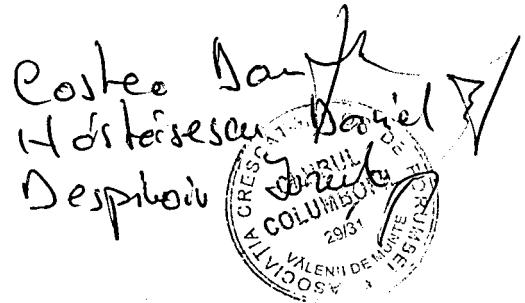 Costea Dan
Hăstăisescu Daniel
Despihoiu Ionela
ASOCIAȚIA CRESCĂT DE PORUMBEI
CLUBUL
COLUMBOFIL
29/31
VĂLENII DE MUNTE